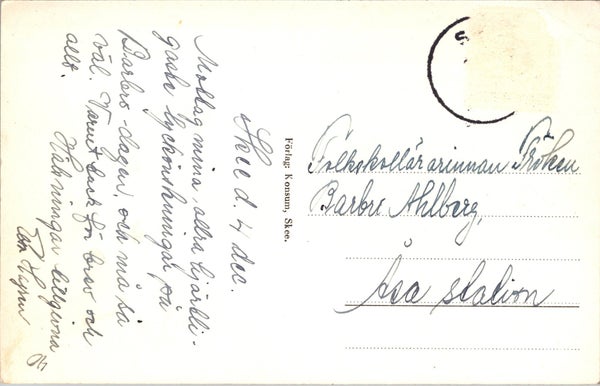 Skee d. 4 dec.
Mottag mina allra hjärtli-
gaste lyckönskningar på
Barbro-dagen, och må så
väl. Varmt tack för brev och
allt.
Hälsningar
Förlag: Konsum, Skee.
Folkskollärarinnan Fröken
Barbro Ahlberg,
Åsa station